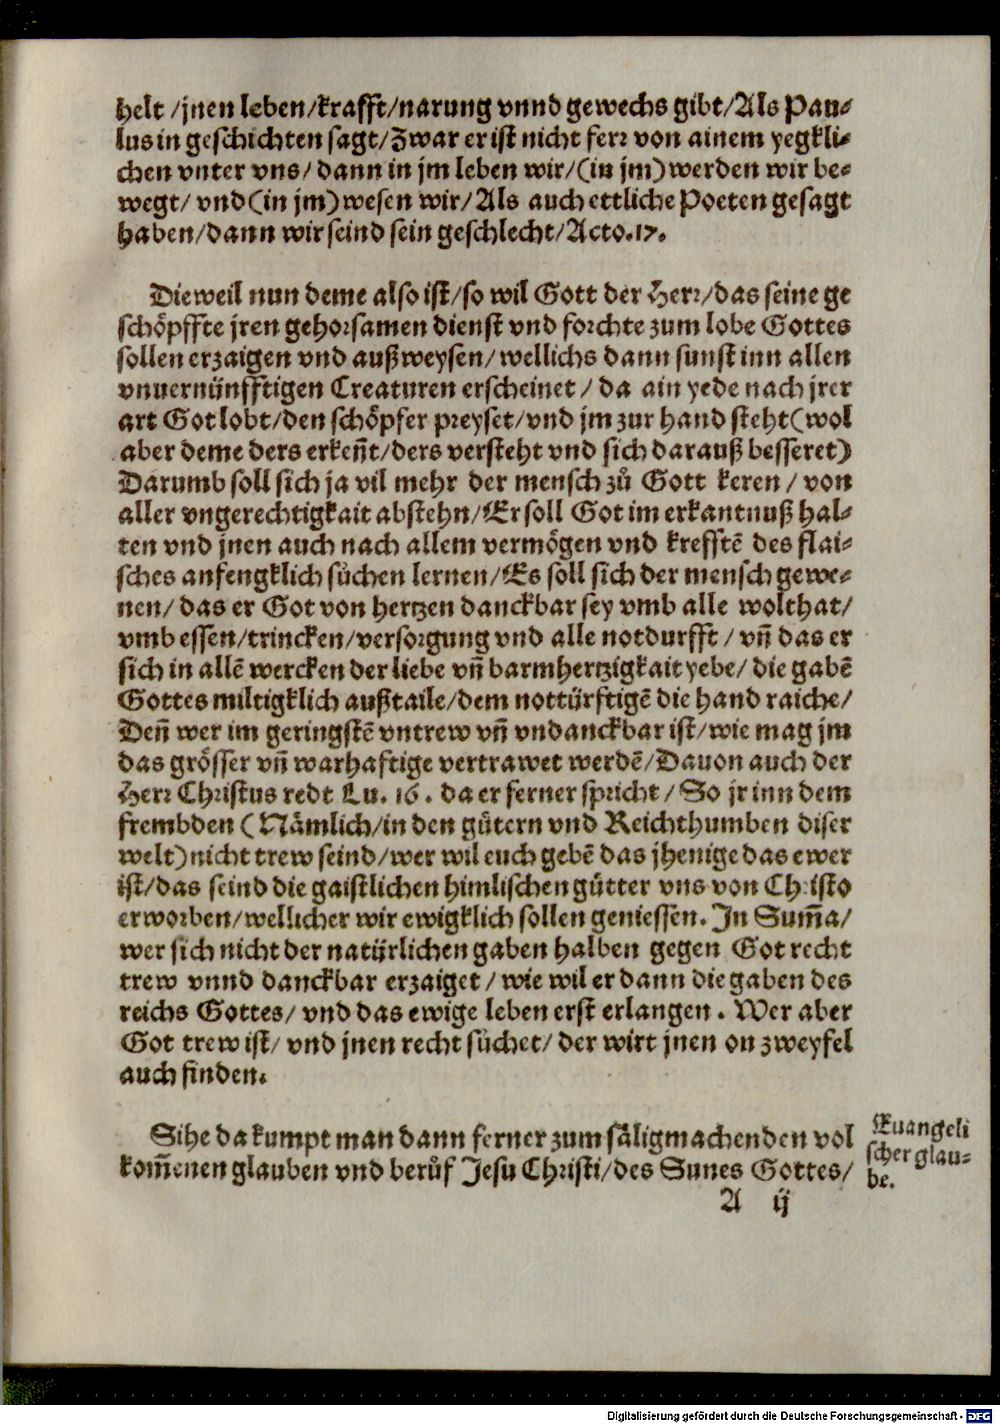 helt /jnen leben/krafft/narung vnnd gewechs gibt/Als Pau-
lus in geschichten sagt/Zwar er ist nicht ferr von ainem yegkli-
chen vnter vns/ dann in jm leben wir/(in jm) werden wir be-
wegt/ vnd (in jm) wesen wir/Als auch ettliche Poeten gesagt
haben/dann wir seind sein geschlecht/Acto.17.
Dieweil nun deme also ist/so wil Gott der Herr/das seine ge
schöpffte jren gehorsamen dienst vnd forchte zum lobe Gottes
sollen erzaigen vnd außweysen/wellichs dann sunst inn allen
vnuernünfftigen Creaturen erscheinet / da ain yede nach jrer
art Got lobt/den schöpfer preyset/vnd jm zur hand steht(wol
aber deme ders erkeñt/ders versteht vnd sich darauß besseret)
Darumb soll sich ja vil mehr der mensch zů Gott keren / von
aller vngerechtigkait abstehn/Er soll Got im erkantnuß hal-
ten vnd jnen auch nach allem vermögen vnd krefftē des flai-
sches anfengklich sůchen lernen/Es soll sich der mensch gewe-
nen/ das er Got von hertzen danckbar sey vmb alle wolthat/
vmb essen/trincken/versorgung vnd alle notdurfft / vñ das er
sich in allē wercken der liebe vñ barmhertzigkait yebe/ die gabē
Gottes miltigklich außtaile/dem nottürftigē die hand raiche/
Deñ wer im geringstē vntrew vñ vndanckbar ist/wie mag jm
das grösser vñ warhaftige vertrawet werdē/Dauon auch der
Herr Christus redt Lu. 16. da er ferner spricht/ So jr inn dem
frembden (Nämlich/in den gütern vnd Reichthumben diser
welt) nicht trew seind/wer wil euch gebē das jhenige das ewer
ist/das seind die gaistlichen himlischen gütter vns von Christo
erworben/wellicher wir ewigklich sollen geniessen. In Sum̃a/
wer sich nicht der natürlichen gaben halben gegen Got recht
trew vnnd danckbar erzaiget / wie wil er dann die gaben des
reichs Gottes/ vnd das ewige leben erst erlangen. Wer aber
Got trew ist/ vnd jnen recht sůchet/ der wirt jnen on zweyfel
auch finden.
Sihe da kumpt man dann ferner zum säligmachenden vol
kom̃enen glauben vnd berůf Jesu Christi/des Sunes Gottes/
Euangeli
scher glau-
be.
A ij
Digitalisierung gefördert durch die Deutsche Forschungsgemeinschaft - DFG